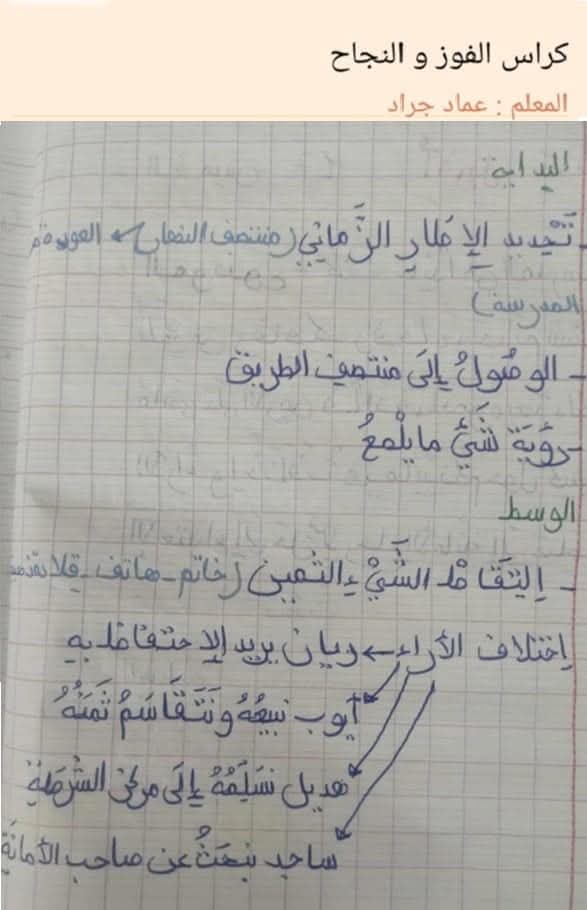 كراس الفوز و النجاح
المعلم : عماد جراد
البداية
- تَحْديد الإِطَارِ الزَّمَانِي (منتصف النهار) ← العودة من
المدرسة)
- الوصُولُ إِلَى منتصف الطريق
- رؤيَة شَيْئٍ ما يلْمعُ
الوسط
- اِلتِقَاط الشَّيْءِ الثَّمين (خاتم - هاتف - قلادة
اِختلاف الأراء ← ريان يريد الاحتفاظ بهِ
أيوب نبيعُهُ ونَتَقَاسَمُ ثَمَنَهُ
هديل نسَلِّمُهُ إِلَى مركز الشرطةِ
ساجد نبحَثُ عن صاحب الأمانَةِ